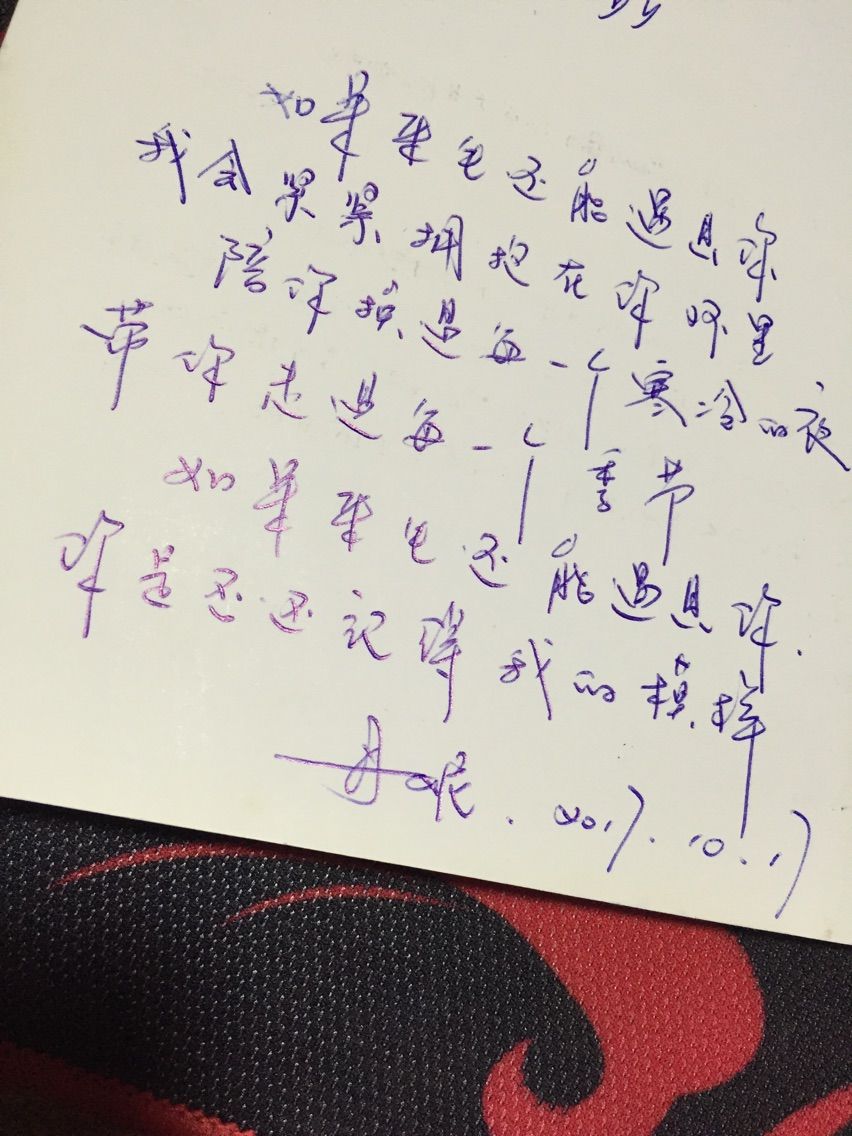 如果来生还能遇见你
我会紧紧拥抱在你怀里
陪你换过每一个寒冷的夜
带你走过每一个季节
如果来生还能遇见你.
你是否还记得我的模样
丹呢. 2017.10.17